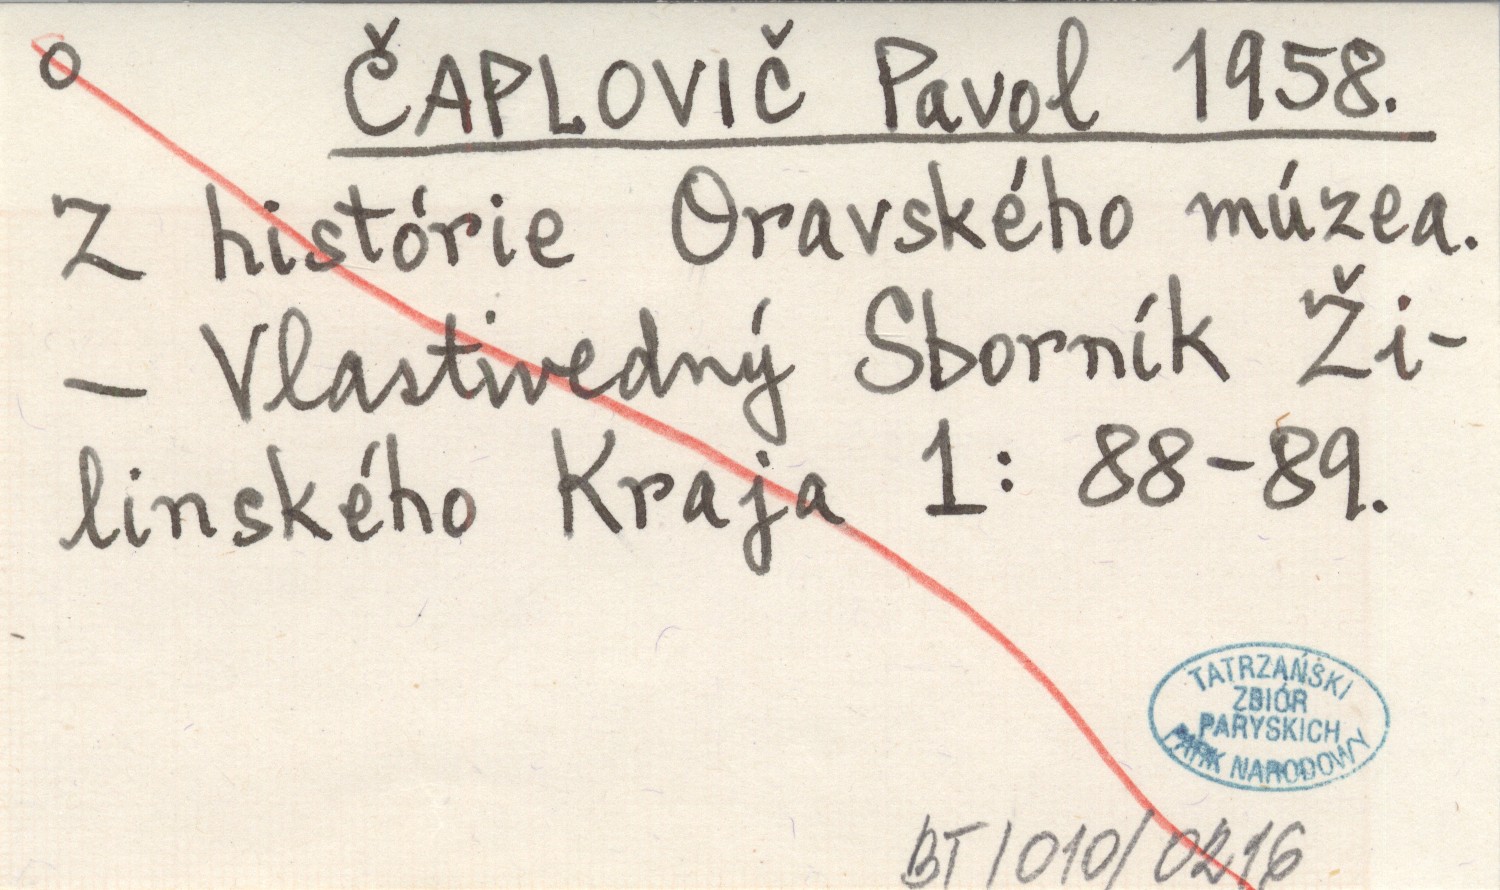 o ČAPLOVIČ Pavol 1958.
Z histórie Oravského múzea.
— Vlastivedný Sborník Ži-
linského Kraja 1: 88-89.
TATRZAŃSKI
ZBIÓR
PARYSKICH
PARK NARODOWY
BT/010/0216